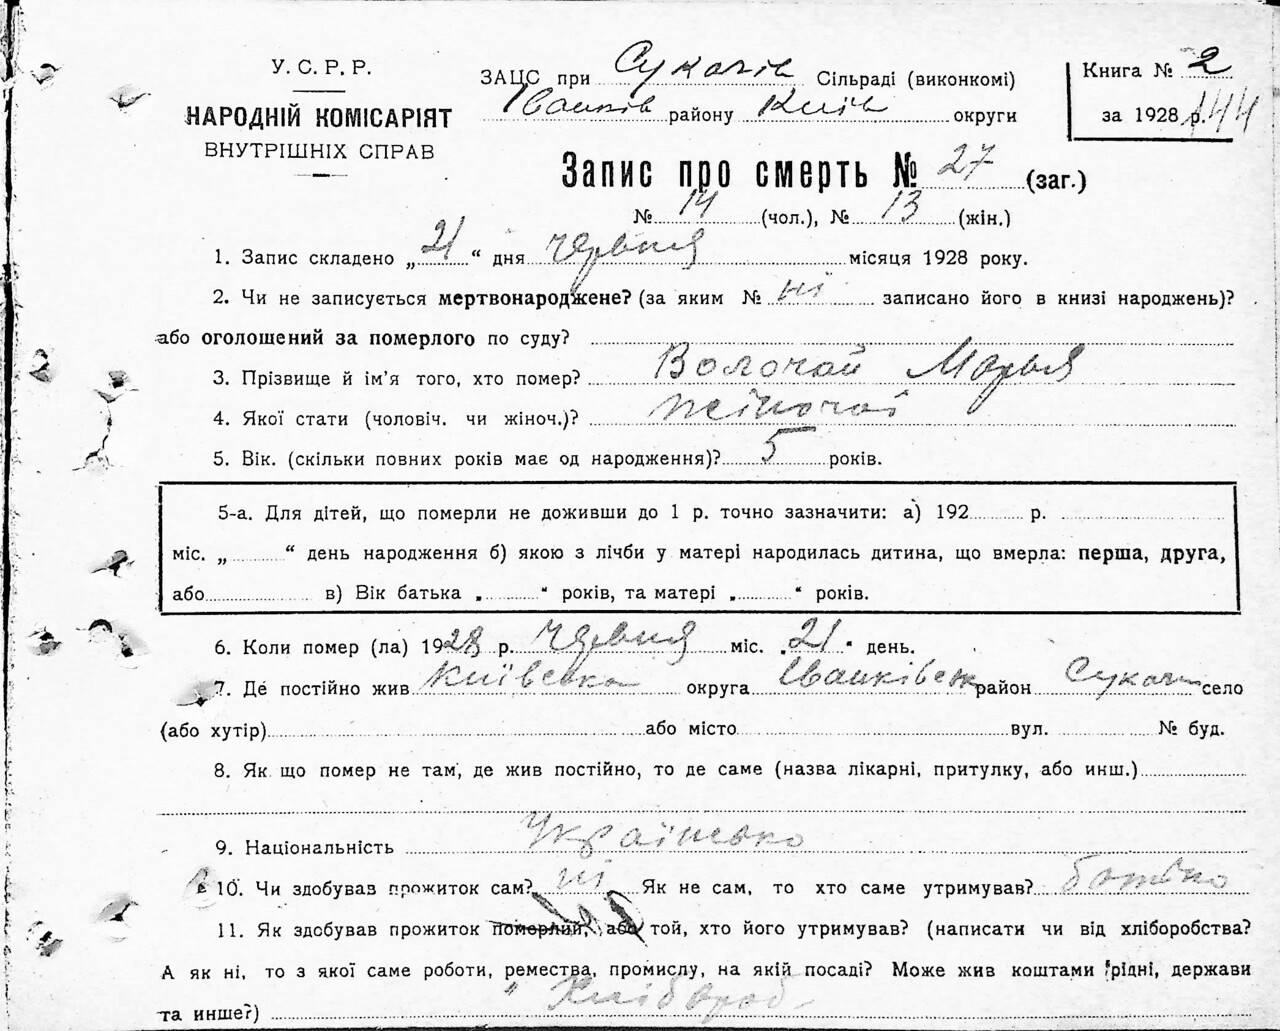 У. С. Р. Р.
НАРОДНІЙ КОМІСАРІЯТ
ВНУТРІШНІХ СПРАВ
ЗАЦС при Сукачів Сільраді (виконкомі)
Іванків району Київ округи
Книга № 2
за 1928 р. 144
Запис про смерть № 27 (заг.)
№ 14 (чол.), № 13 (жін.)
1. Запис складено „ 21 “ дня червня місяця 1928 року.
2. Чи не записується мертвонароджене? (за яким № ні записано його в книзі народжень)?
або оголошений за померлого по суду?
3. Прізвище й ім’я того, хто помер? Волочай Марья
4. Якої стати (чоловіч. чи жіноч.)? жіночої
5. Вік. (скільки повних років має од народження)? 5 років.
5-а. Для дітей, що померли не доживши до 1 р. точно зазначити: а) 192 р.
міс. „ “ день народження б) якою з лічби у матері народилась дитина, що вмерла: перша, друга,
або в) Вік батька „ “ років, та матері „ “ років.
6. Коли помер (ла) 1928 р. червня міс. „ 21 “ день.
7. Де постійно жив Київська округа Іванківськ район Сукачі село
(або хутір) або місто вул. № буд.
8. Як що помер не там, де жив постійно, то де саме (назва лікарні, притулку, або инш.)
9. Національність Українська
10. Чи здобував прожиток сам? ні Як не сам, то хто саме утримував? батько
11. Як здобував прожиток померлий, або той, хто його утримував? (написати чи від хліборобства?
А як ні, то з якої саме роботи, ремества, промислу, на якій посаді? Може жив коштами рідні, держави
та инше?) Хлібороб